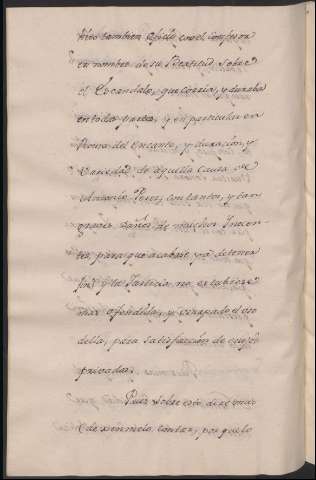 hizo tambien oficio con el confesor
en nombre de su Beatitud, sobre
el Escandalo, que corria, y duraba
en todas partes, y en particular en
Roma del encanto, y duracion, y
de aquella causa de
Antonio Perez, con tantos, y tan
graves daños de muchos Inocen-
tes, para que acabase ya de tener
fin, y la Justicia no estubiese
mas ofendida, y ocupado el oso
della, para satisfaccion de enojos
privados.
Pues sobre esto diré mas
de un cuento, por que lo